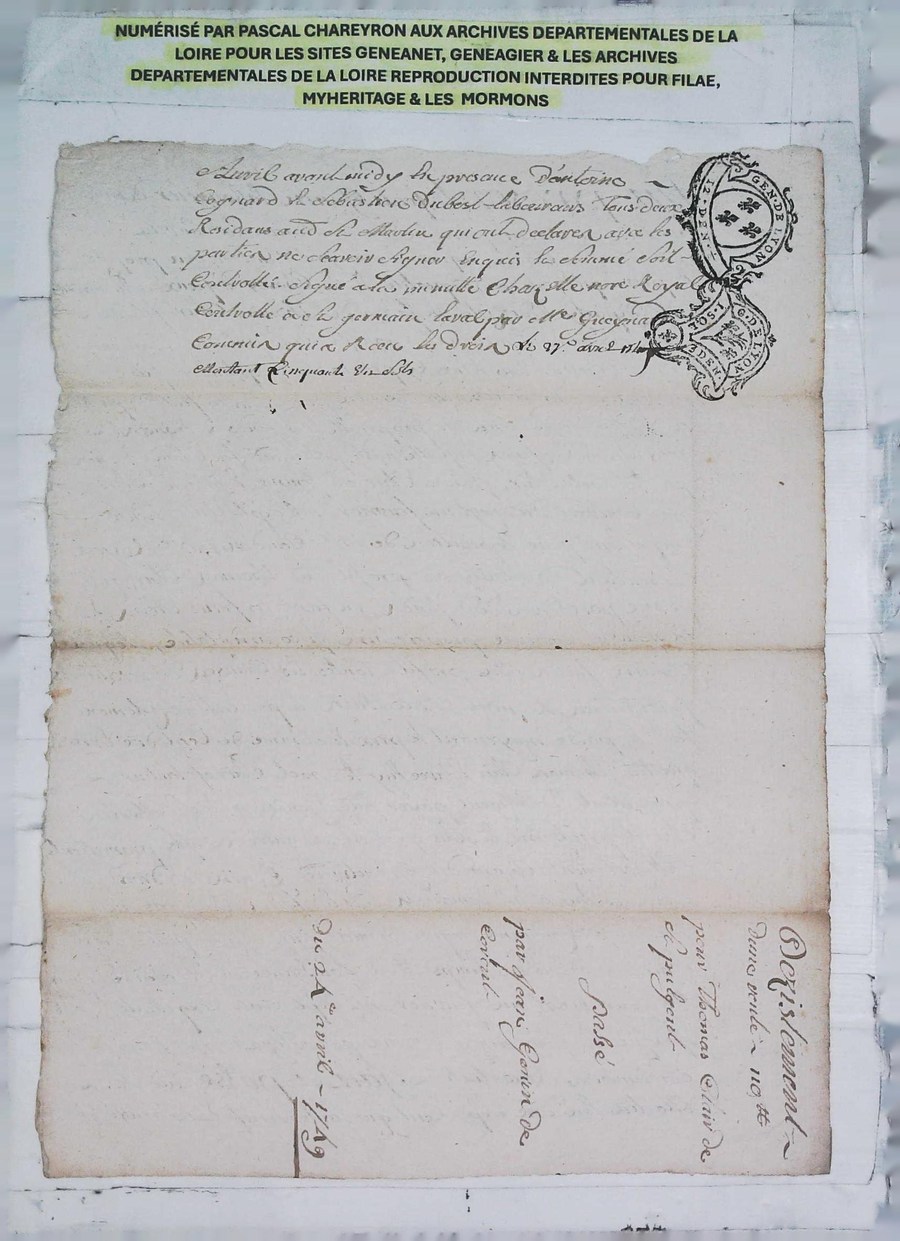 NUMÉRISÉ PAR PASCAL CHAREYRON AUX ARCHIVES DEPARTEMENTALES DE LA
LOIRE POUR LES SITES GENEANET, GENEAGIER & LES ARCHIVES
DEPARTEMENTALES DE LA LOIRE REPRODUCTION INTERDITES POUR FILAE,
MYHERITAGE & LES MORMONS
avant midy En presence D'antoine
Cognard & Sebastien Dubost tous deux
Residans aud St Martin qui ont declaren avec les
parties ne Scavoir Signer Enquis la Soit
Controllé Signé a la minutte Chazelle nore Royal
Controllé a St germain laval par Mr
Commis qui a Receu les droits le 27e avril
Cinquante Un sols
GEN. DE LYON
12. DEN
G. DE LYON
Dezistement
dune vente 110tt
pour Thomas Clair de
St pulgent
Passé
par Jean Genin de
du 24e avril 1749